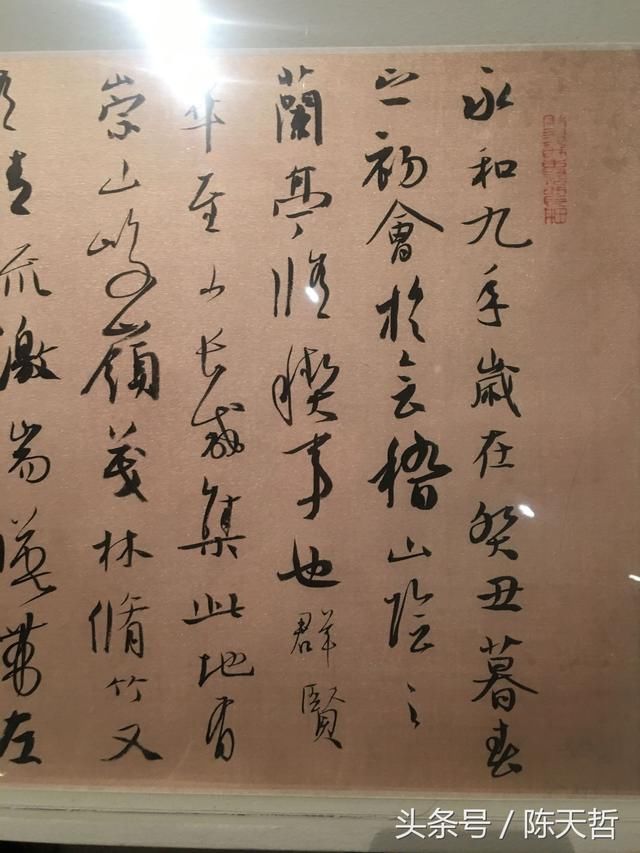 永和九年歲在癸丑暮春
之初會於會稽山陰之
蘭亭脩稧事也群賢
畢至少長咸集此地有
崇山峻領茂林脩竹又
清流激湍暎帶左
头条号 / 陈天哲